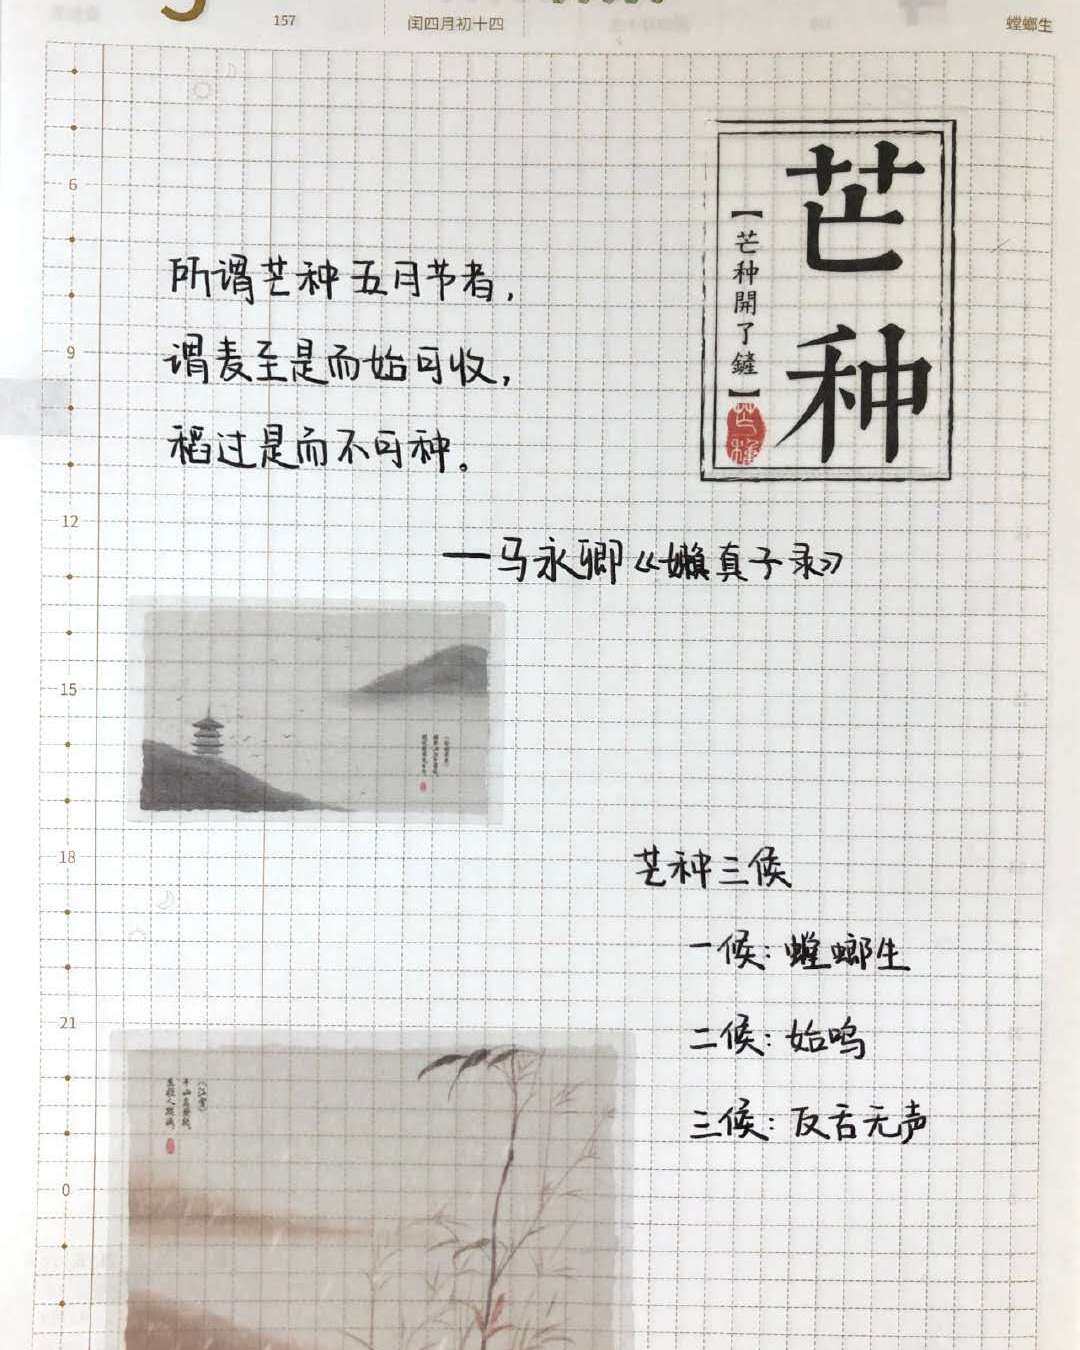 157
闰四月初十四
螳螂生
芒种
【芒种開了鏟】
芒種
6
所谓芒种五月节者，
9
谓麦至是而始可收，
稻过是而不可种。
12
——马永卿《懒真子录》
15
18
芒种三候
一候：螳螂生
二候：始鸣
21
三候：反舌无声
《江雪》
千山鸟飞绝，
0